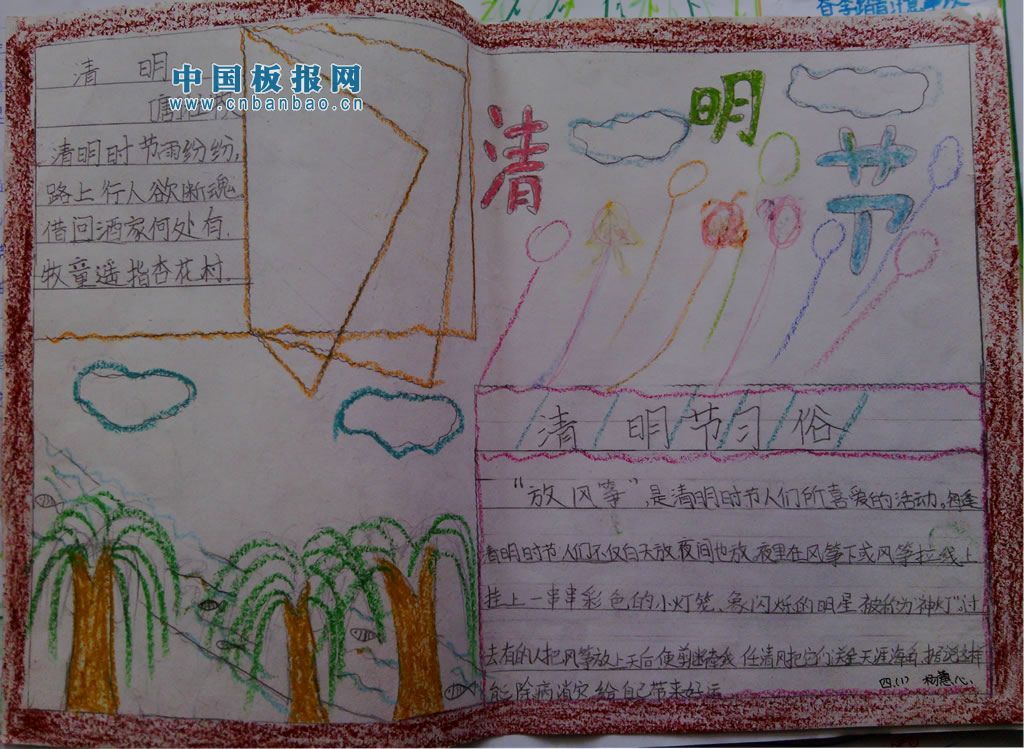 清 明
中国板报网
www.cnbanbao.cn
清明时节雨纷纷,
路上行人欲断魂
借问酒家何处有.
牧童遥指杏花村.
清 明 节
清 明 节 习 俗
“放风筝”是清明时节人们所喜爱的活动。每逢
清明时节人们不仅白天放夜间也放.夜里在风筝下或风筝拉线上
挂上一串串彩色的小灯笼、象闪烁的明星 被称为“神灯”.过
去有的人把风筝放上天后便剪断牵线 任清风把它们送至天涯海角.据说这样
能除病消灾给自己带来好运
四.(1) 杨蕙心.